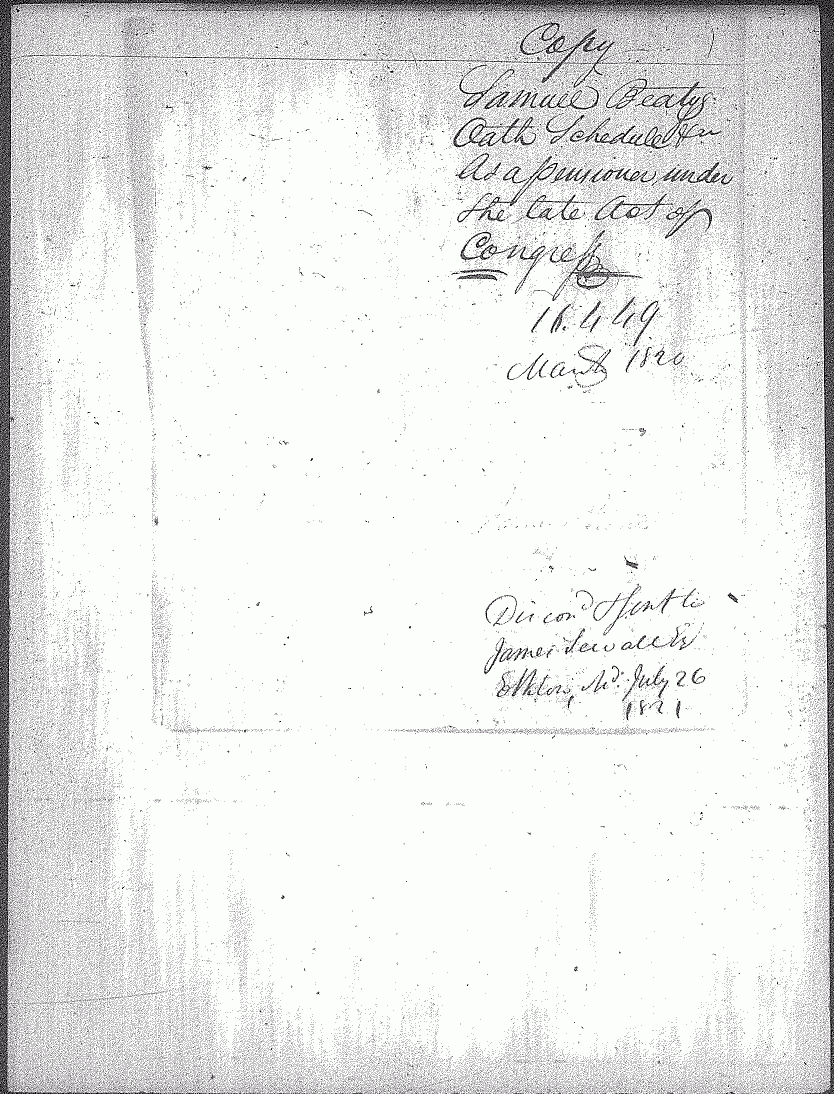 Copy
Samuel Beatys
Oath Schedule &c
As a pensioner under
the late Act of
Congress
16.449
March 1820
Discond & sent to
James Sewall Esq
Elkton, Md. July 26
1821